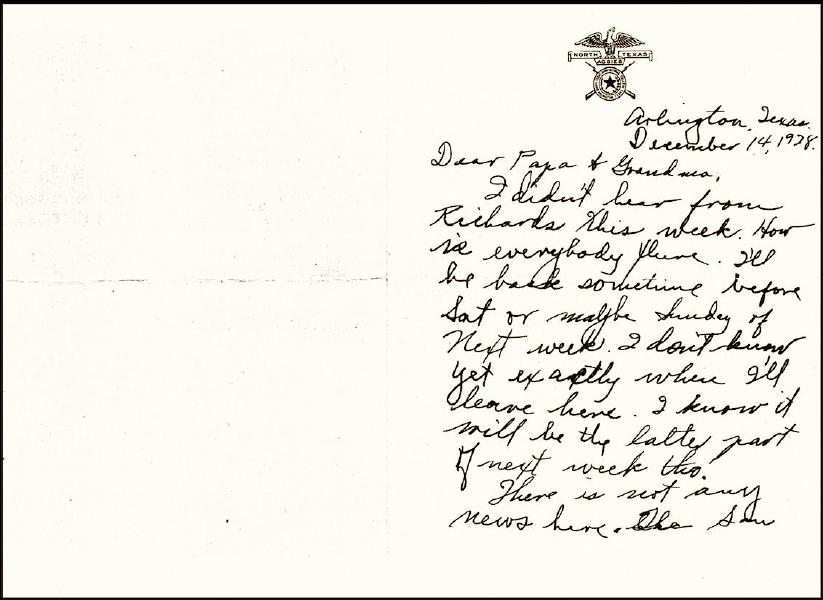 NORTH TEXAS
AGGIES
Arlington, Texas.
December 14, 1938.
Dear Papa & Grandma,
I didn't hear from
Richards this week. How
is everybody there. I'll
be back sometime before
Sat or maybe Sunday of
Next week. I don't know
yet exactly when I'll
leave here. I know it
will be the latter part
of next week tho.
There is not any
news here. The San